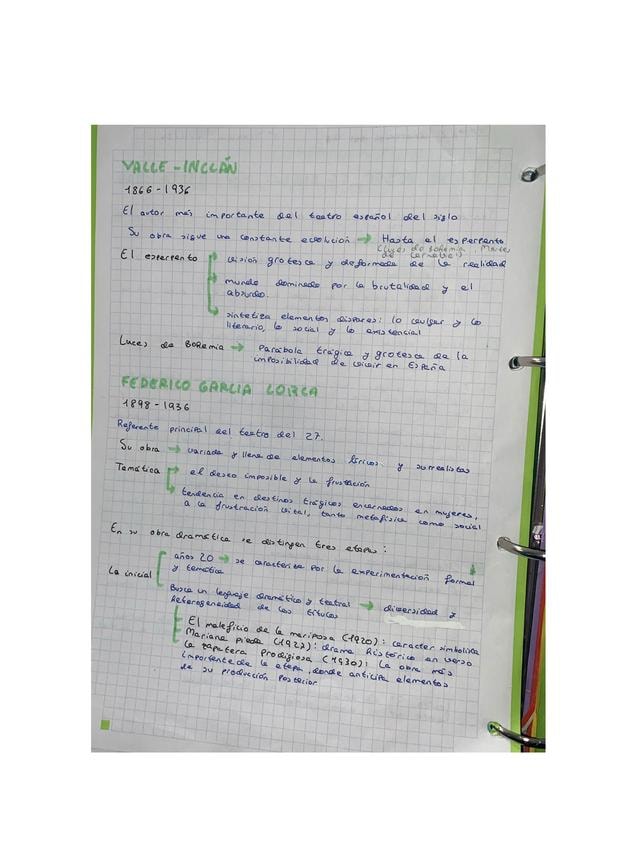 VALLE-INCLÁN
1866-1936
El autor más importante del teatro español del siglo
Su obra sigue una constante evolución → Hasta el esperpento
(Luces de Bohemia, Martes
de carnaval)
El esperpento → visión grotesca y deformada de la realidad
→ mundo dominado por la brutalidad y el
absurdo.
→ sintetiza elementos dispares: lo vulgar y lo
literario, lo social y lo existencial
Luces de Bohemia → Parábola trágica y grotesca de la
imposibilidad de vivir en España
FEDERICO GARCIA LORCA
1898-1936
Referente principal del teatro del 27.
Su obra → variada y llena de elementos líricos y surrealistas
Temática → el deseo imposible y la frustación
→ tendencia en destinos trágicos encarnados en mujeres,
a la frustración vital, tanto metafísica como social
En su obra dramática se distingen tres etapas:
años 20 → se caracteriza por la experimentación formal
y temática
La inicial
Busca un lenguaje dramático y teatral → diversidad y
heterogeneidad de los títulos
El maleficio de la mariposa (1920): caracter simbolista
Mariana pineda (1927): drama histórico en verso
La zapatera prodigiosa (1930): la obra más
importante de la etapa, donde anticipa elementos
de su producción posterior